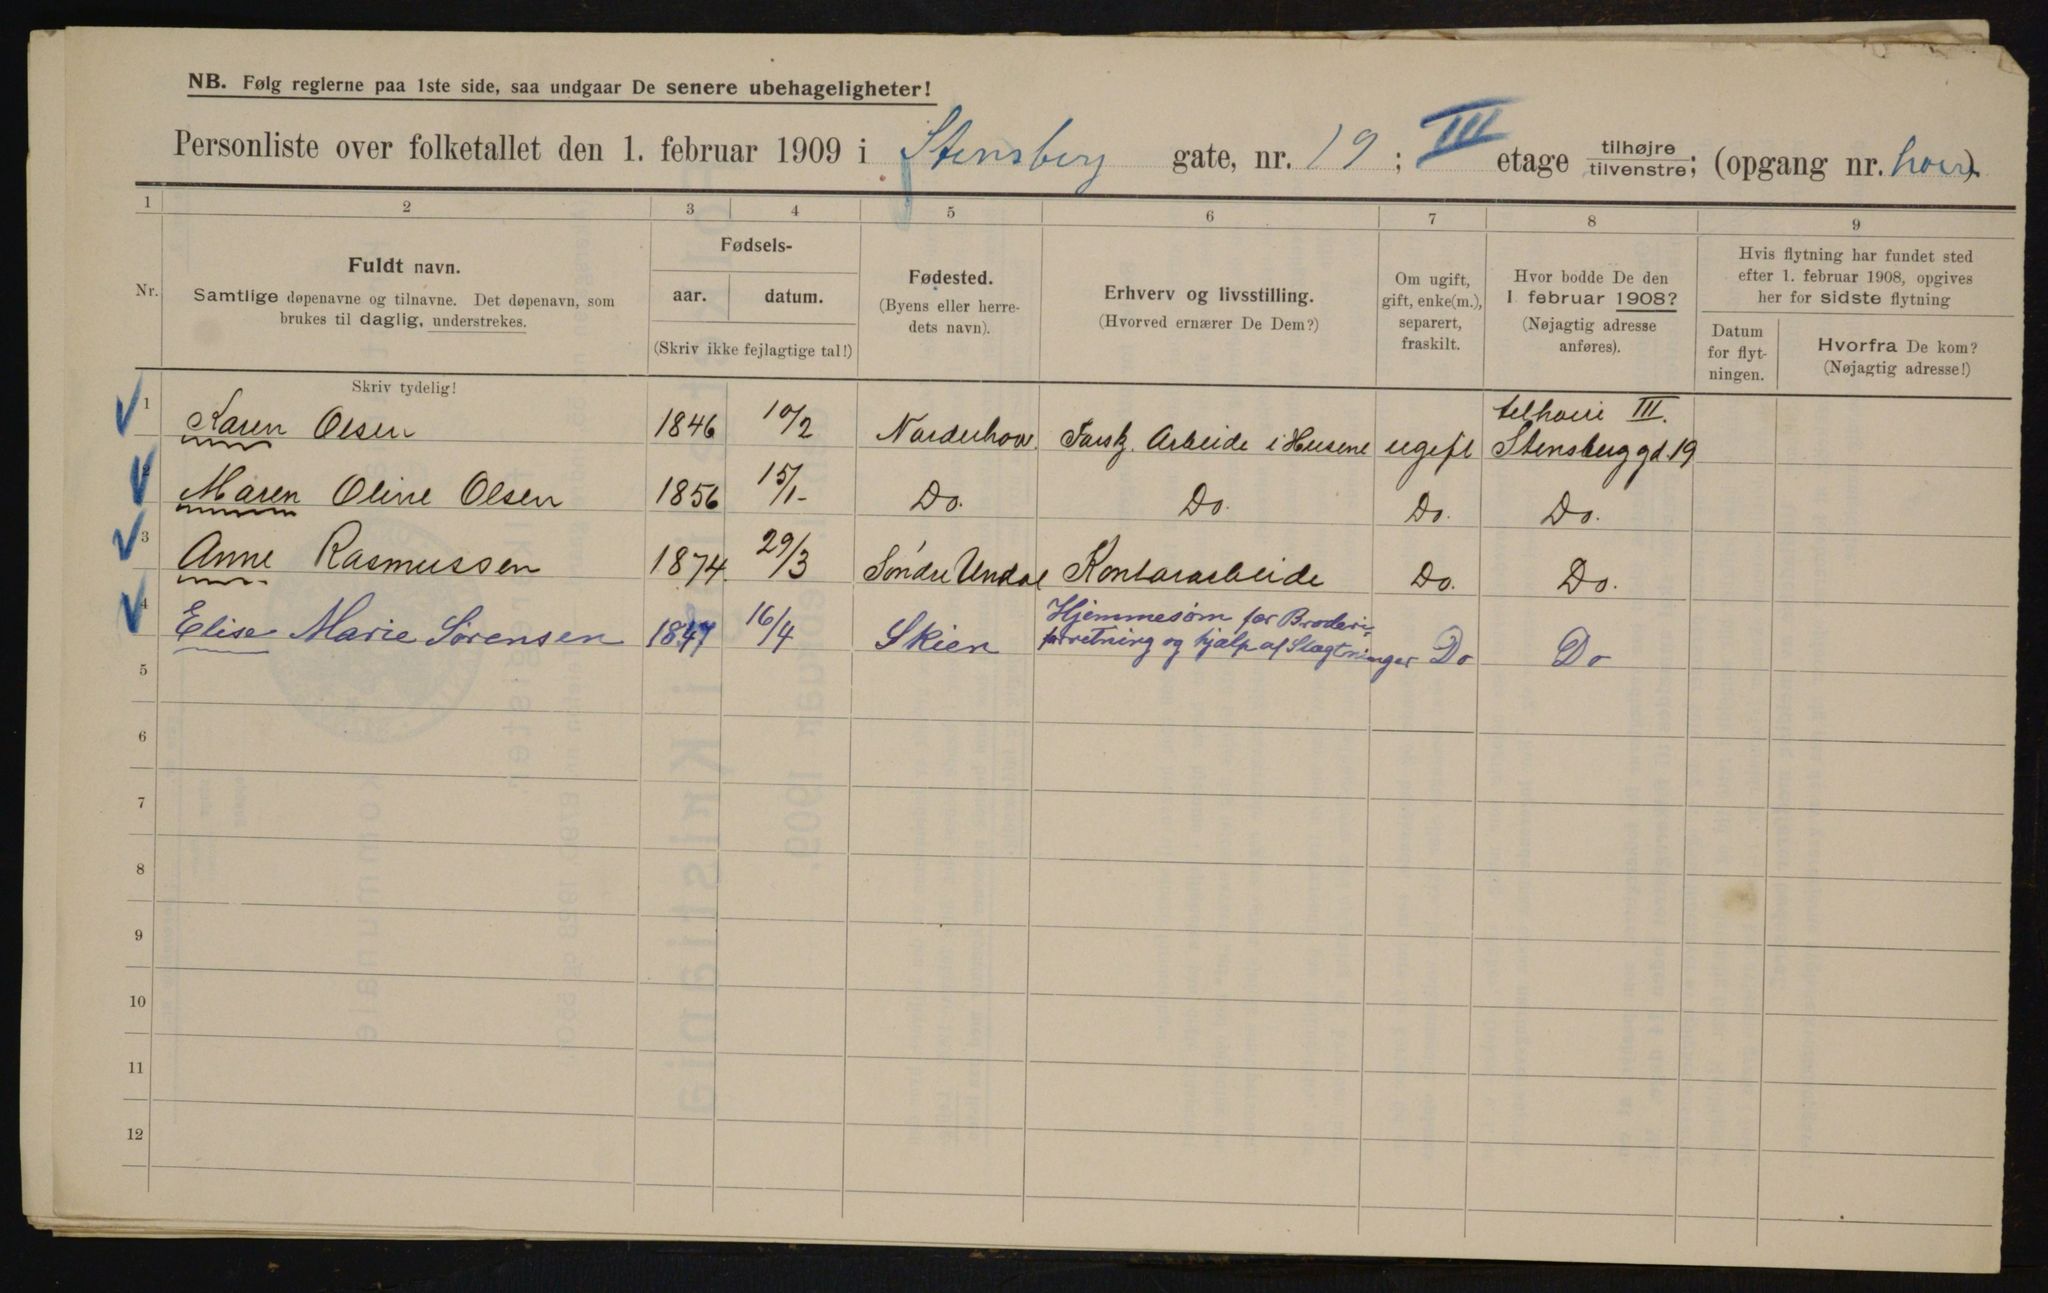 NB. Følg reglerne paa 1ste side, saa undgaar De senere ubehageligheter!
Personliste over folketallet den 1. februar 1909 i Stensberg gate, nr. 19; III etage tilhøjre/tilvenstre; (opgang nr. hoir).
1 2 3 4 5 6 7 8 9
Nr.
Fuldt navn.
Samtlige døpenavne og tilnavne. Det døpenavn, som
brukes til daglig, understrekes.
Skriv tydelig!
Fødsels-
aar. datum.
(Skriv ikke fejlagtige tal!)
Fødested.
(Byens eller herre-
dets navn).
Erhverv og livsstilling.
(Hvorved ernærer De Dem?)
Om ugift,
gift, enke(m.),
separert,
fraskilt.
Hvor bodde De den
1 februar 1908?
(Nøjagtig adresse
anføres).
Hvis flytning har fundet sted
efter 1. februar 1908, opgives
her for sidste flytning
Datum
for flyt-
ningen.
Hvorfra De kom?
(Nøjagtig adresse!)
telhoire III.
1 Karen Olsen 1846 10/2 Norderhov. Forsk. Arbeide i Husene ugift Stensberggd. 19
2 Maren Oline Olsen 1856 15/1- Do. Do. Do. Do.
3 Anne Rasmussen 1874. 29/3 Søndre Undal Kontorarbeide Do. Do.
4 Elise Marie Sørensen 1847 16/4 Skien Hjemmesøm for Broderi-
forretning og hjælp af Slægtninger Do Do
5
6
7
8
9
10
11
12